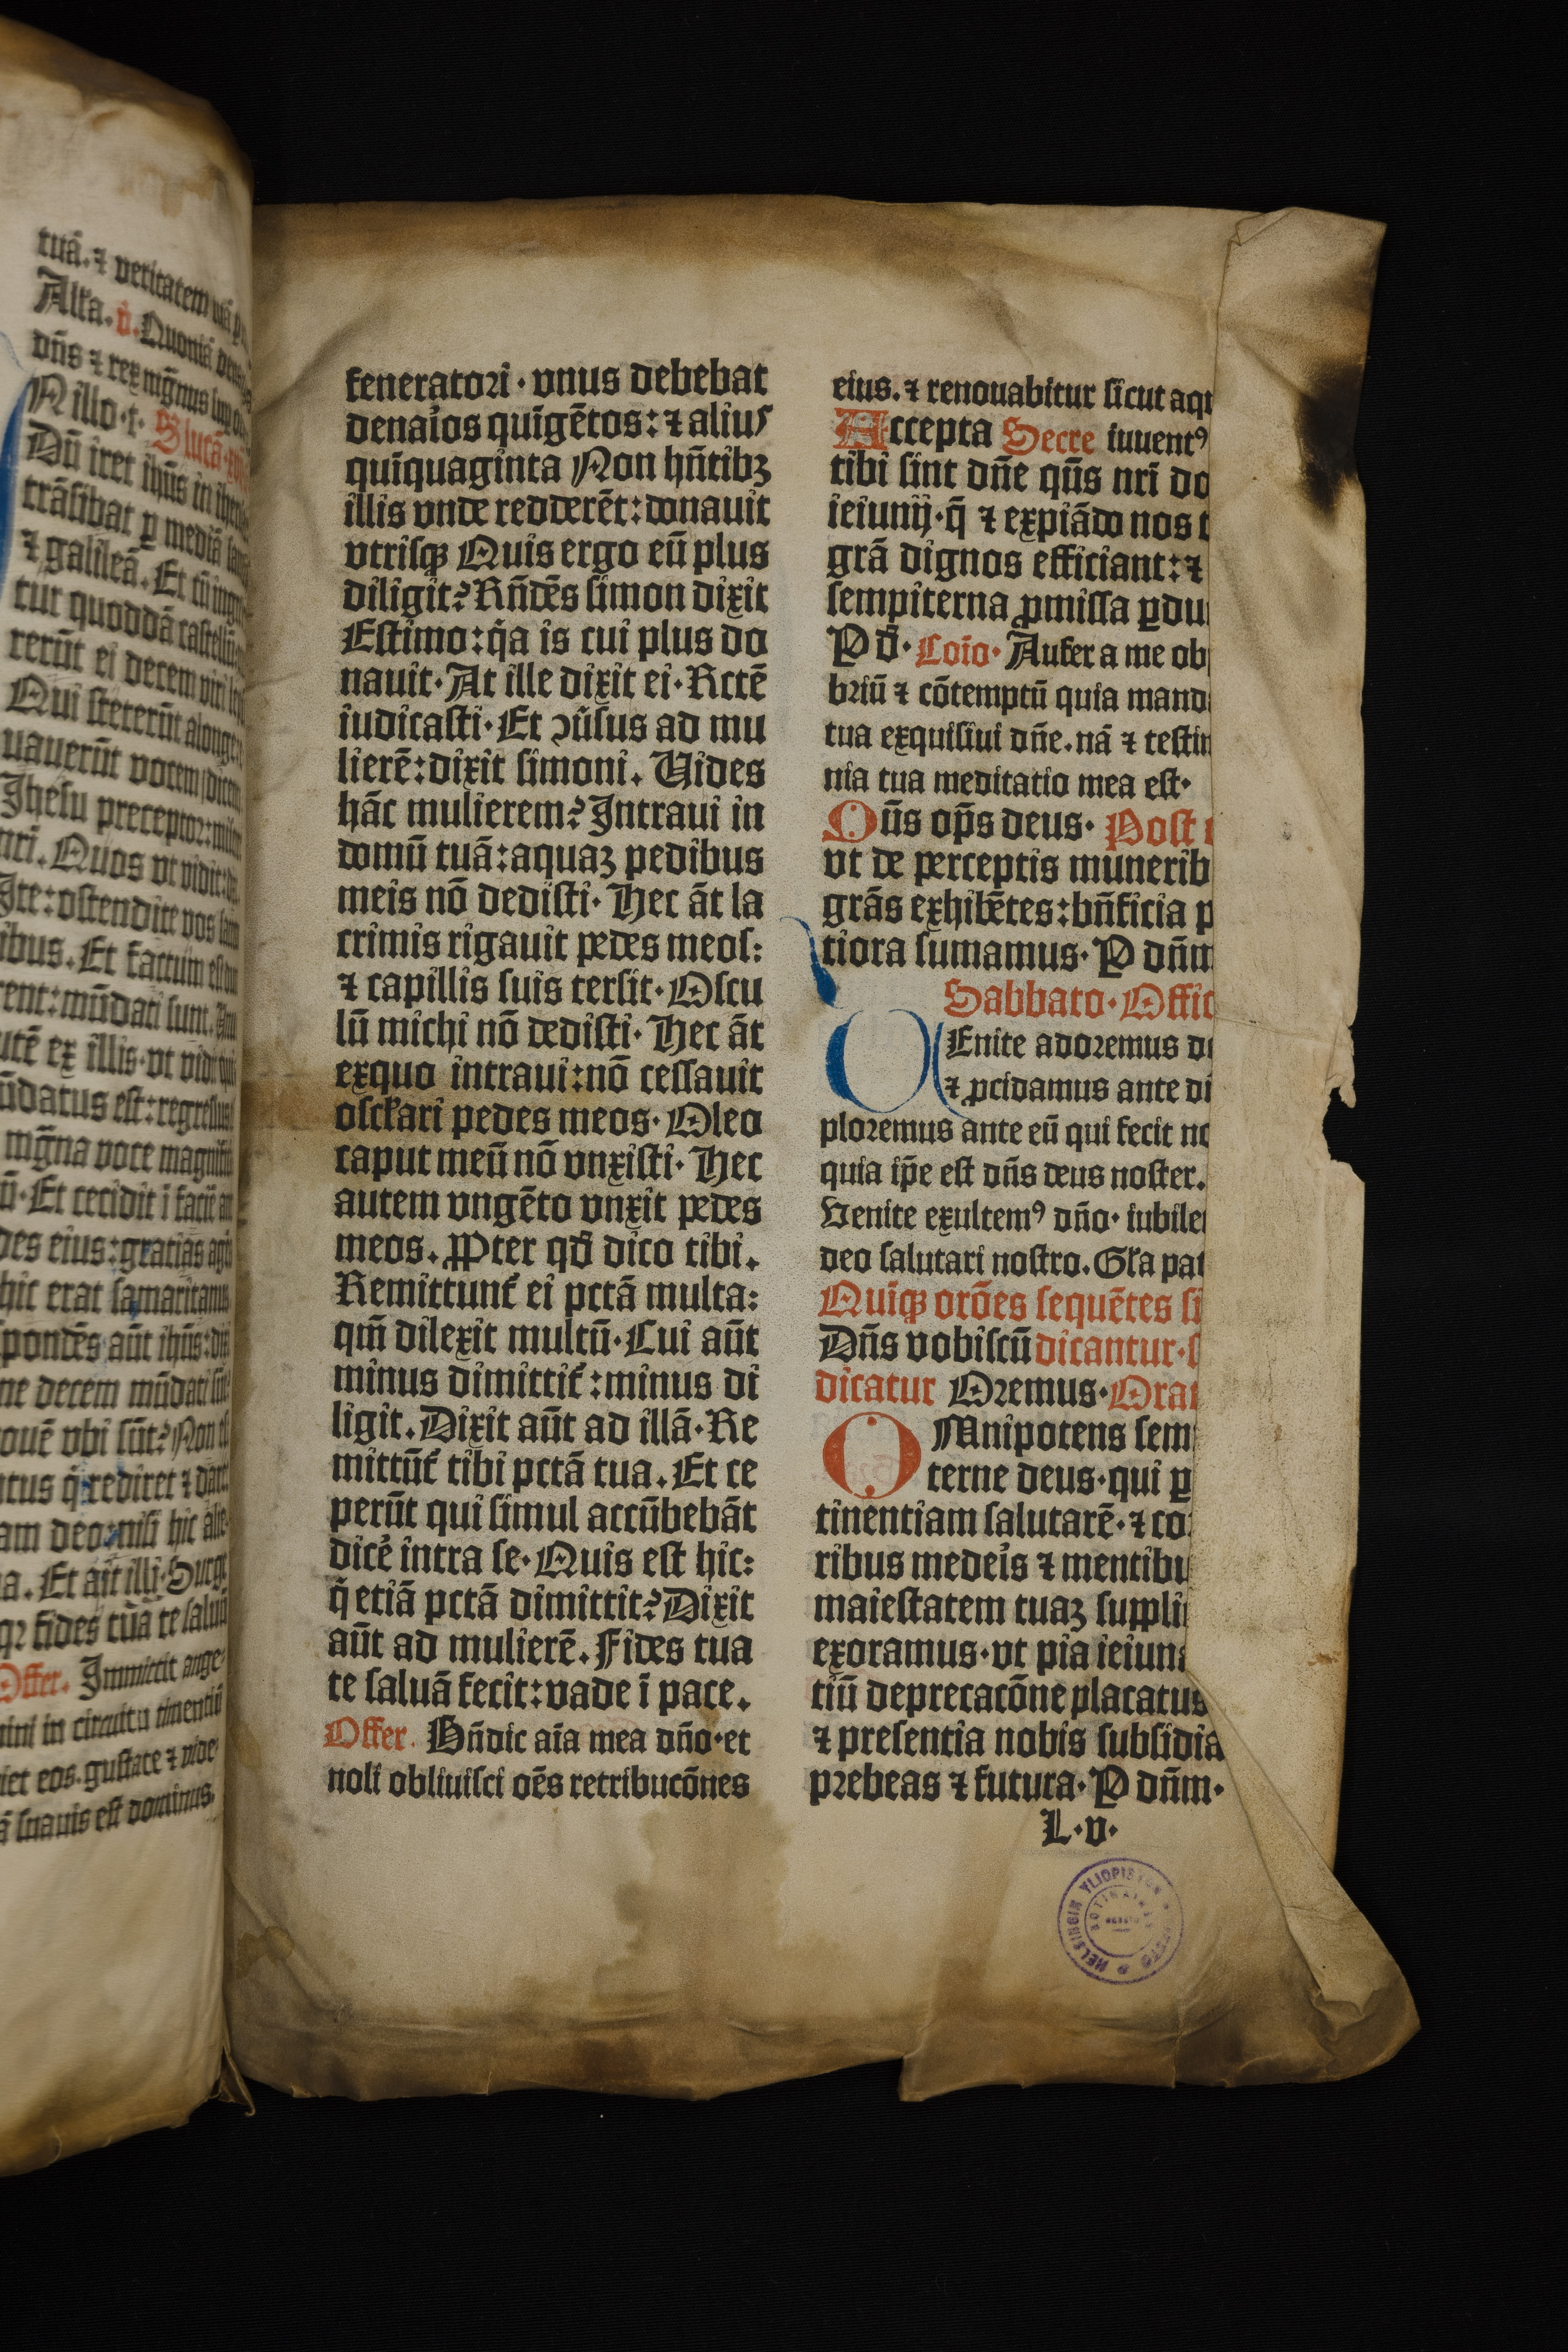 tuā.⁊ veritatem
Alła. v̊. Quoniā
dn̄s ⁊ rex mg̅nus
N illo·t· S lucā
Dū iret ihūs in
trāsibat ꝑ mediā
⁊ galileā. Et
tur quoddā castellū
rerūt ei decem viri
Qui steterūt alonge
uauerūt vocem dicen
Jhesu preceptor:
nri. Quos vt vidit:
Ite:ostendite vos
ibus. Et factum est
rent:mūdati sunt.
utē ex illis·vt
ūdatus est:regressus
mg̅na voce
ū·Et cecidit ī
des eius:gratias
hic erat samaritanus
pondēs aūt ihūs:
ne decem mūdati
ouē vbi sūt? Non
rediret ⁊
am deo:nisi hic
a. Et ait illi·Surge
fides tua te saluū
Offer. Immittit ange
ini in circuitu timentiū
iet eos. gustate ⁊ vide
suauis est dominus.
feneratori·vnus debebat
denaı̉os quīgētos:⁊ alius
quīquaginta Non hn̄tibꝫ
illis vnde redderēt:donauit
vtrisqꝫ Quis ergo eū plus
diligit? Rn̄dēs simon dixit
Estimo:q̉a is cui plus do
nauit·At ille dixit ei·Rctē
iudicasti·Et ↄūsus ad mu
lierē:dixit simoni. Uides
hāc mulierem? Intraui in
domū tuā:aquaꝫ pedibus
meis nō dedisti·Hec āt la
crimis rigauit pedes meos:
⁊ capillis suis tersit·Oscu
lū michi nō dedisti·Hec āt
exquo intraui:nō cessauit
osc̄łari pedes meos·Oleo
caput meū nō vnxisti·Hec
autem vngēto vnxit pedes
meos. Ꝓpter qđ dico tibi.
Remittunt̉ ei pctā multa:
qm̄ dilexit multū·Cui aūt
minus dimittit̉:minus di
ligit. Dixit aūt ad illā·Re
mittūt̉ tibi pctā tua. Et ce
perūt qui simul accūbebāt
dicē intra se·Quis est hic:
q̉ etiā pctā dimittit? Dixit
aūt ad mulierē. Fides tua
te saluā fecit:vade ī pace.
Offer. Bn̄dic aīa mea dn̄o·et
noli obliuisci oēs retribucōnes
eius. ⁊ renouabitur sicut aqu
Accepta Secre iuuentꝰ
tibi sint dn̄e qūs nrī do
ieiunij·q̄ ⁊ expiādo nos t
grā dignos efficiant:⁊
sempiterna ꝓmissa ꝑdu
P đ· Coīo· Aufer a me ob
briū ⁊ cōtemptū quia mand
tua exquisiui dn̄e. nā ⁊ testim
nia tua meditatio mea est·
Oūs op̄s deus· Post
vt de perceptis munerib
grās exhibētes:bn̄ficia p
tiora sumamus·P dn̄m
Sabbato·Offic
VEnite adoremus
⁊ ꝓcidamus ante
ploremus ante eū qui fecit no
quia ip̄e est dn̄s deus noster.
Venite exultemꝰ dn̄o·iubile
deo salutari nostro. Gła pat
Quīqꝫ orōes sequētes si
Dn̄s vobiscū dicantur·
dicatur Oremus·Orat
OMnipotens sem
terne deus·qui ꝑ
tinentiam salutarē·⁊ co
ribus medeı̉s ⁊ mentibu
maiestatem tuaꝫ suppli
exoramus·vt pia ieiun
tiū deprecacōne placatus
⁊ presentia nobis subsidia
prebeas ⁊ futura·P dn̄m·
L·v·
HELSINGIN YLIOPISTON